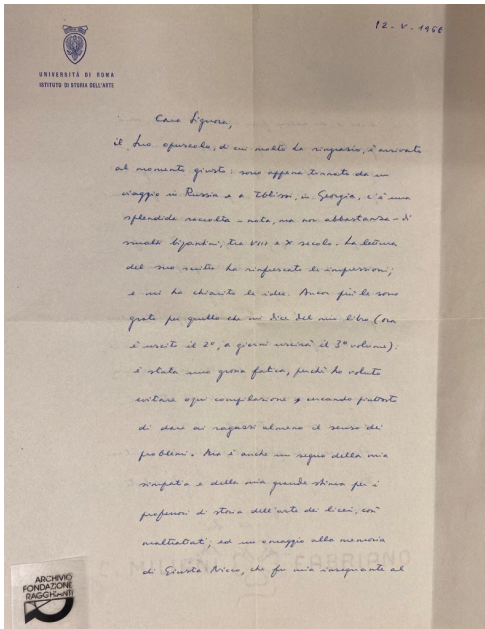 12-V-1968
UNIVERSITÀ DI ROMA
ISTITUTO DI STORIA DELL'ARTE
Cara Signora,
il Suo opuscolo, di cui molto La ringrazio, è arrivato
al momento giusto: sono appena tornato da un
viaggio in Russia e a Tblissi, in Georgia, v'è una
splendida raccolta - nota, ma non abbastanza - di
smalti bizantini, tra VIII e X secolo. La lettura
del suo scritto ha rinfrescato le impressioni;
e mi ha chiarito le idee. Ancor più le sono
grato per quello che mi dice del mio libro (ora
è uscito il 2°, a giorni uscirà il 3° volume):
è stata una grossa fatica, perché ho voluto
evitare ogni compilazione cercando piuttosto
di dare ai ragazzi almeno il senso dei
problemi. Ma è anche un segno della mia
simpatia e della mia grande stima per i
professori di storia dell'arte dei licei, così
maltrattati; ed un omaggio alla memoria
di Giusta Nicco, che fu mia insegnante al
ARCHIVIO
FONDAZIONE
RAGGHIANTI